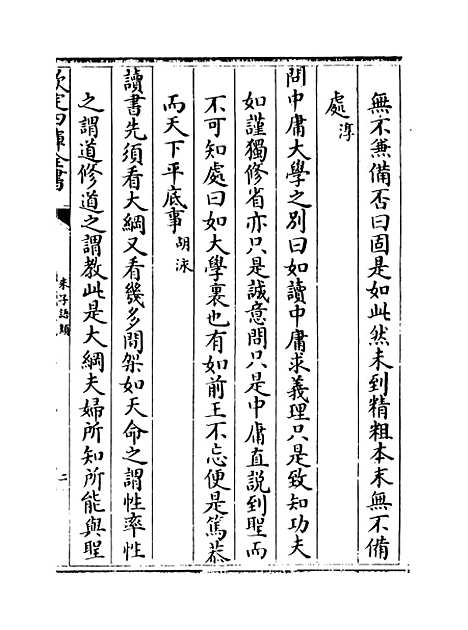 無不兼備否曰固是如此然未到精粗本末無不備
處淳
問中庸大學之别曰如讀中庸求義理只是致知功夫
如謹獨修省亦只是誠意問只是中庸直説到聖而
不可知處曰如大學裏也有如前王不忘便是篤恭
而天下平底事胡泳
讀書先須看大綱又看幾多間架如天命之謂性率性
之謂道修道之謂教此是大綱夫婦所知所能與聖
欽定四庫全書
朱子語類
二